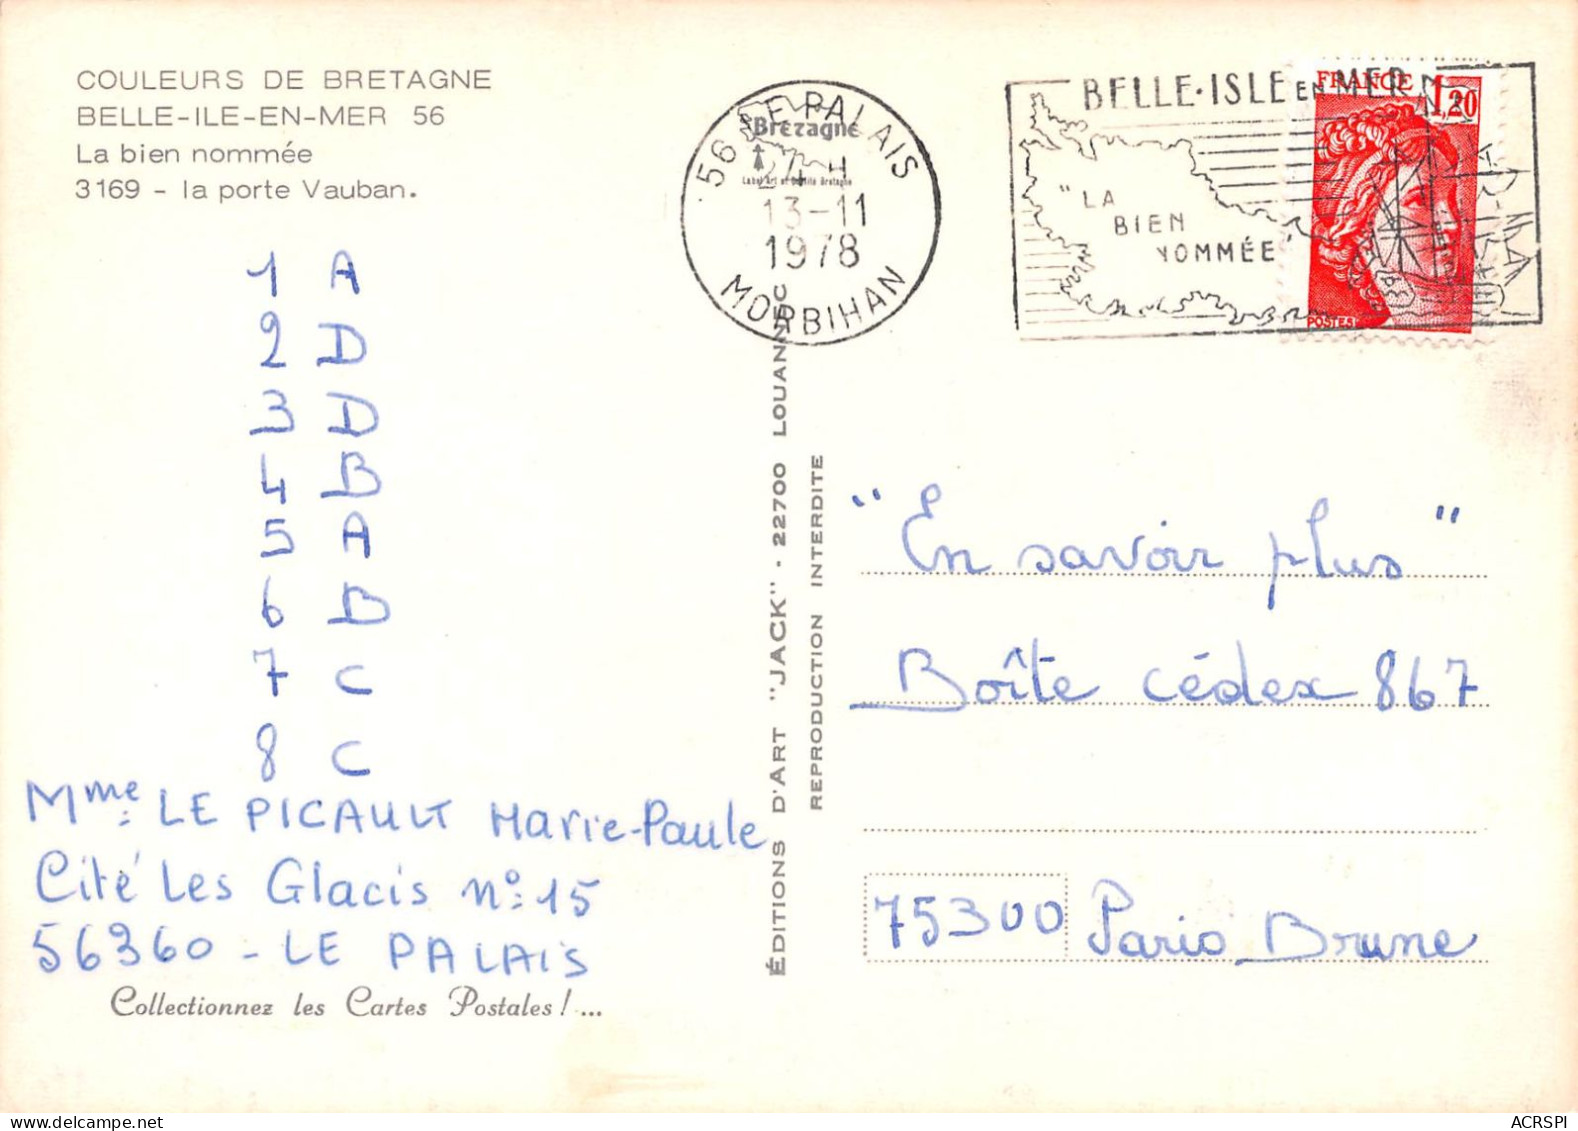 COULEURS DE BRETAGNE
BELLE-ILE-EN-MER 56
La bien nommée
3169 - la porte Vauban.
56 LE PALAIS
Bretagne
24 H
13-11
1978
MORBIHAN
BELLE-ISLE EN MER
"LA
BIEN
NOMMÉE"
FRANCE 1,20
POSTES
1 A
2 D
3 D
4 B
5 A
6 B
7 C
8 C
Mme LE PICAULT Marie-Paule
Cité Les Glacis n° 15
56360 - LE PALAIS
Collectionnez les Cartes Postales ! ...
ÉDITIONS D'ART "JACK" - 22700 LOUANNEC
REPRODUCTION INTERDITE
"En savoir plus"
Boîte cédex 867
75300 Paris Brune
delcampe.net
ACRSPI